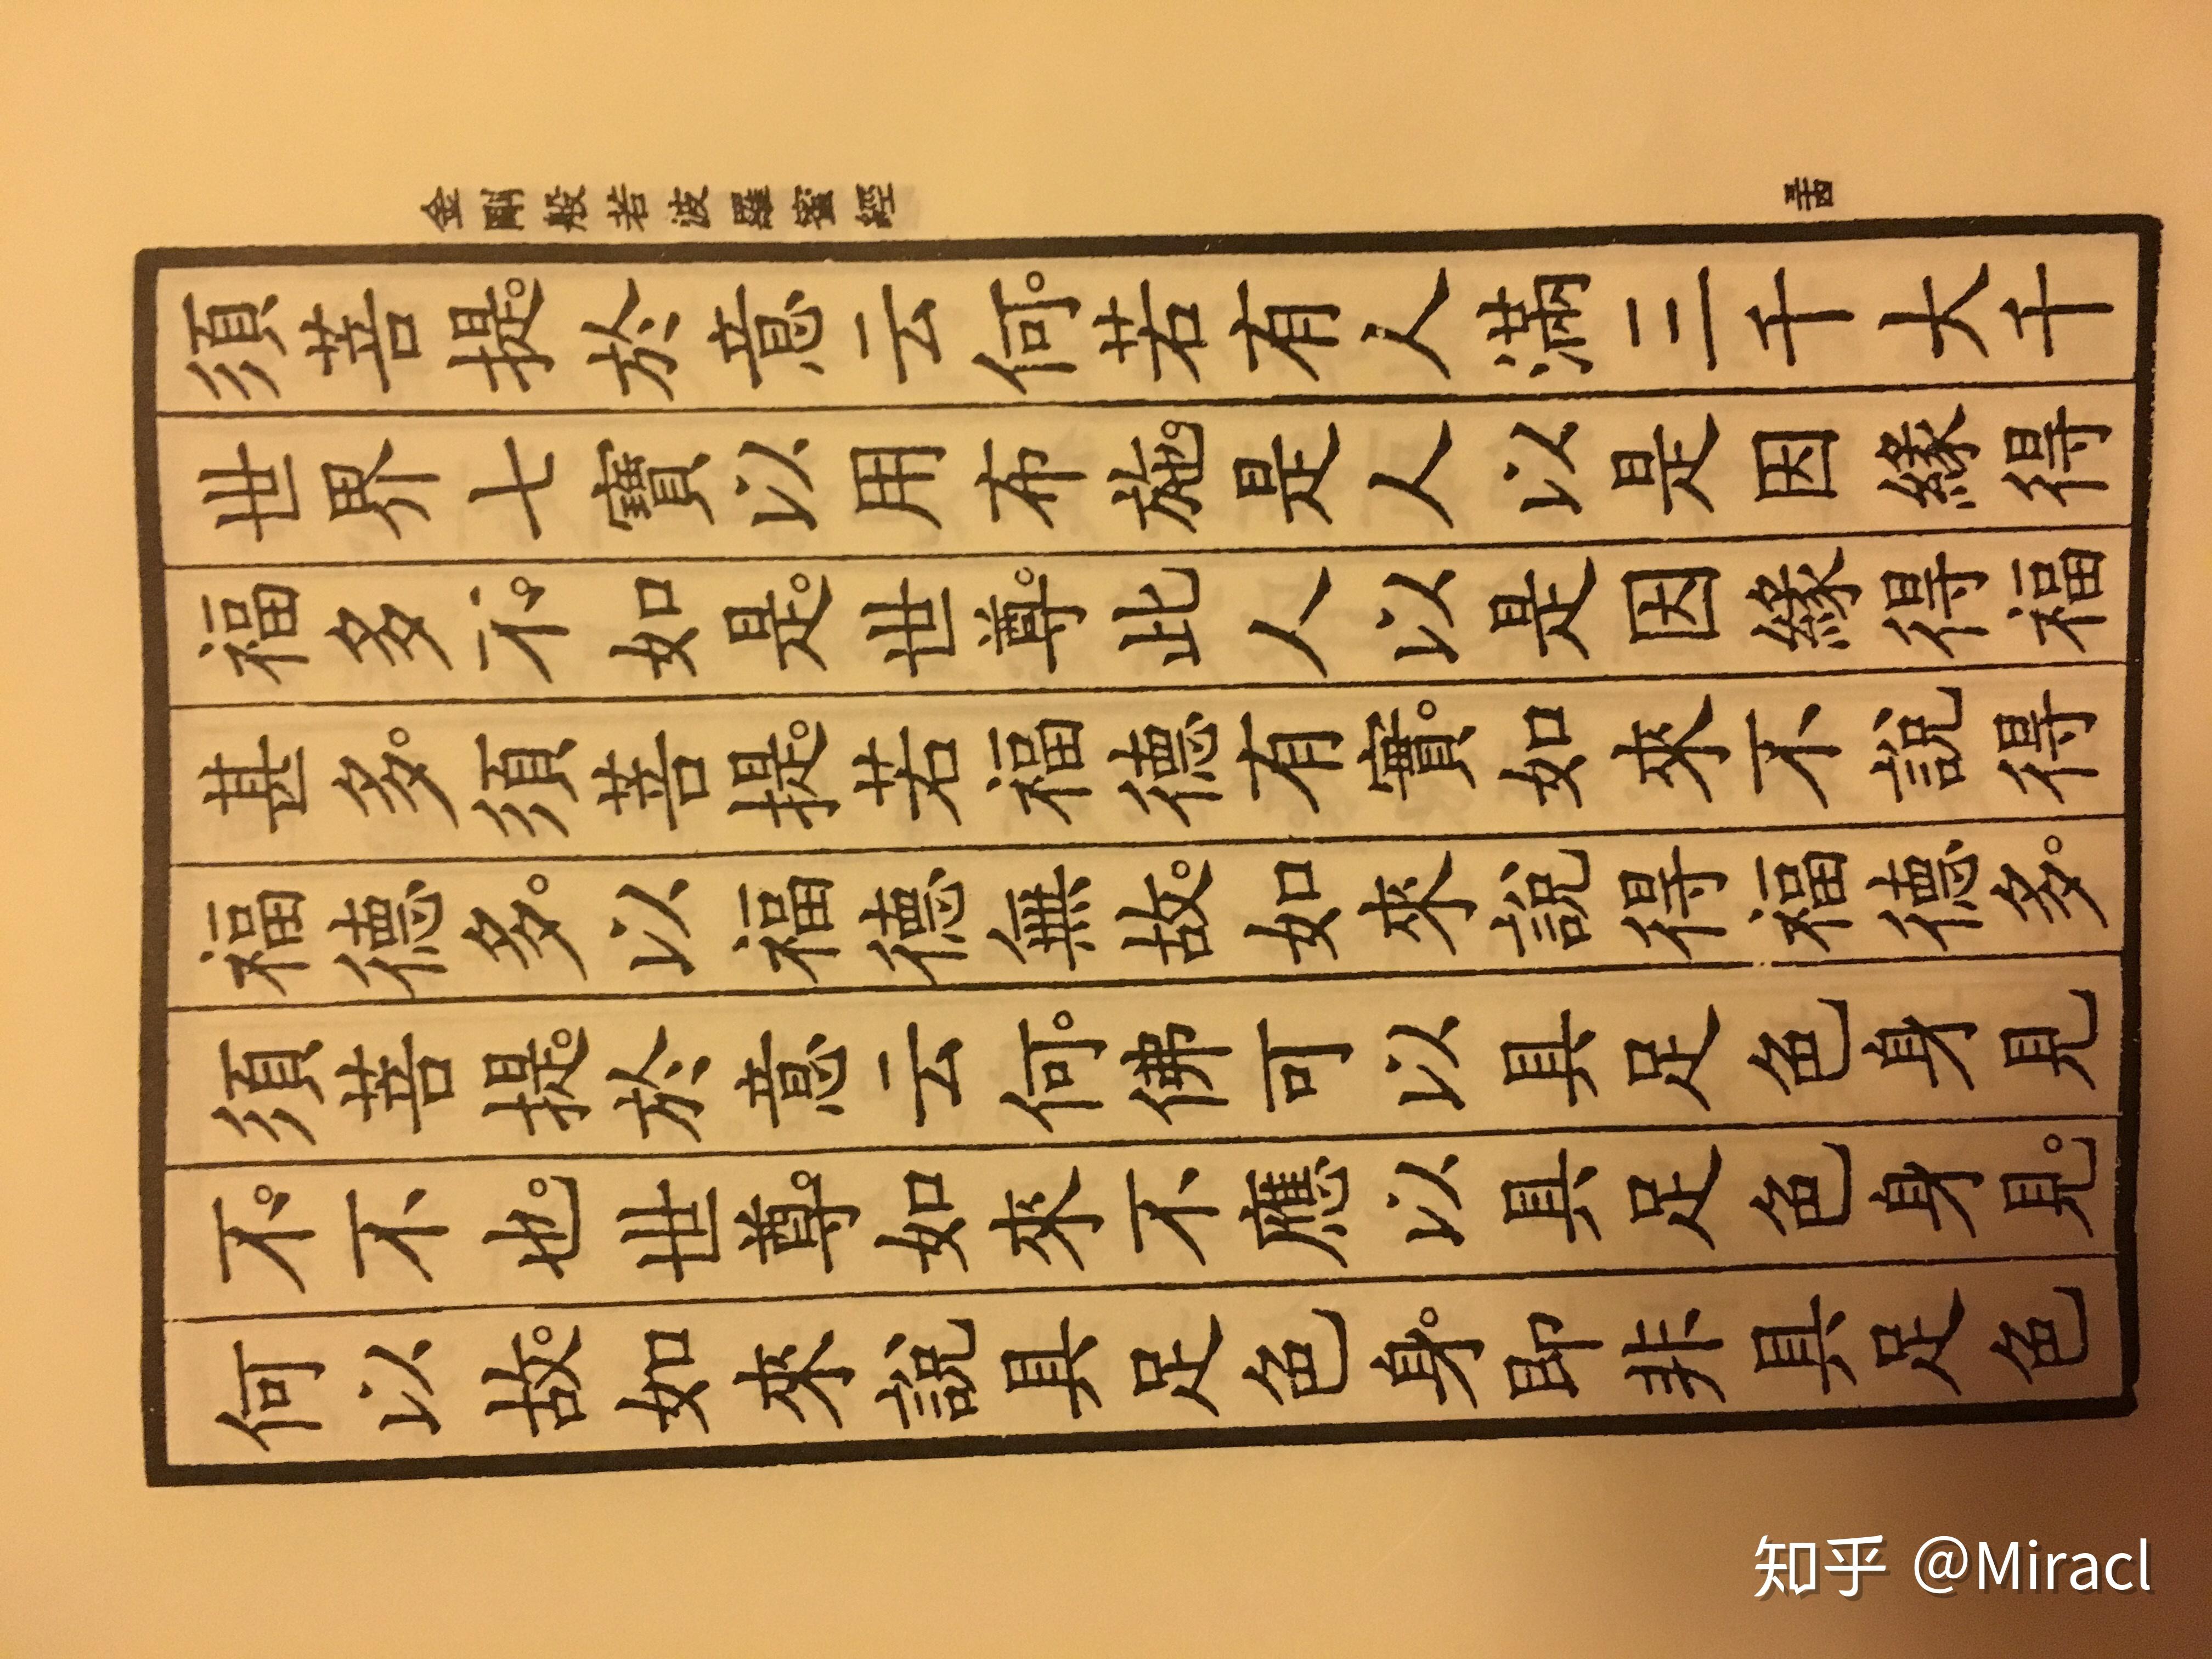 金剛般若波羅蜜經
須菩提。於意云何。若有人滿三千大千
世界七寶以用布施。是人以是因緣得
福多不。如是。世尊。此人以是因緣得福
甚多。須菩提。若福德有實。如來不說得
福德多。以福德無故。如來說得福德多。
須菩提。於意云何。佛可以具足色身見
不。不也。世尊。如來不應以具足色身見。
何以故。如來說具足色身。即非具足色
知乎 @Miracl